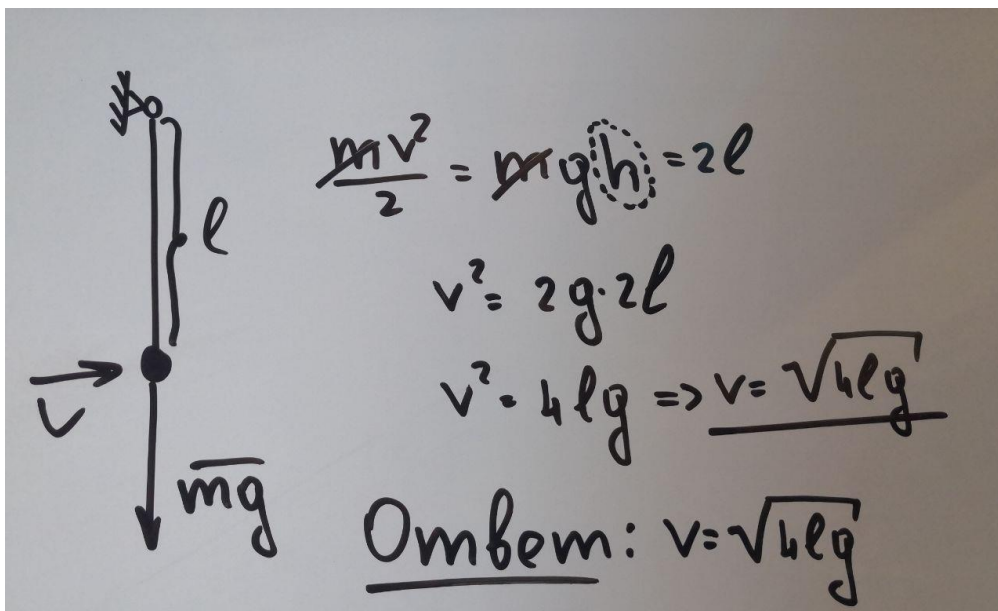 l
mv²/2 = mgh = 2l
v² = 2g·2l
v² = 4lg => v = √4lg
v
mg
Ответ: v = √4lg